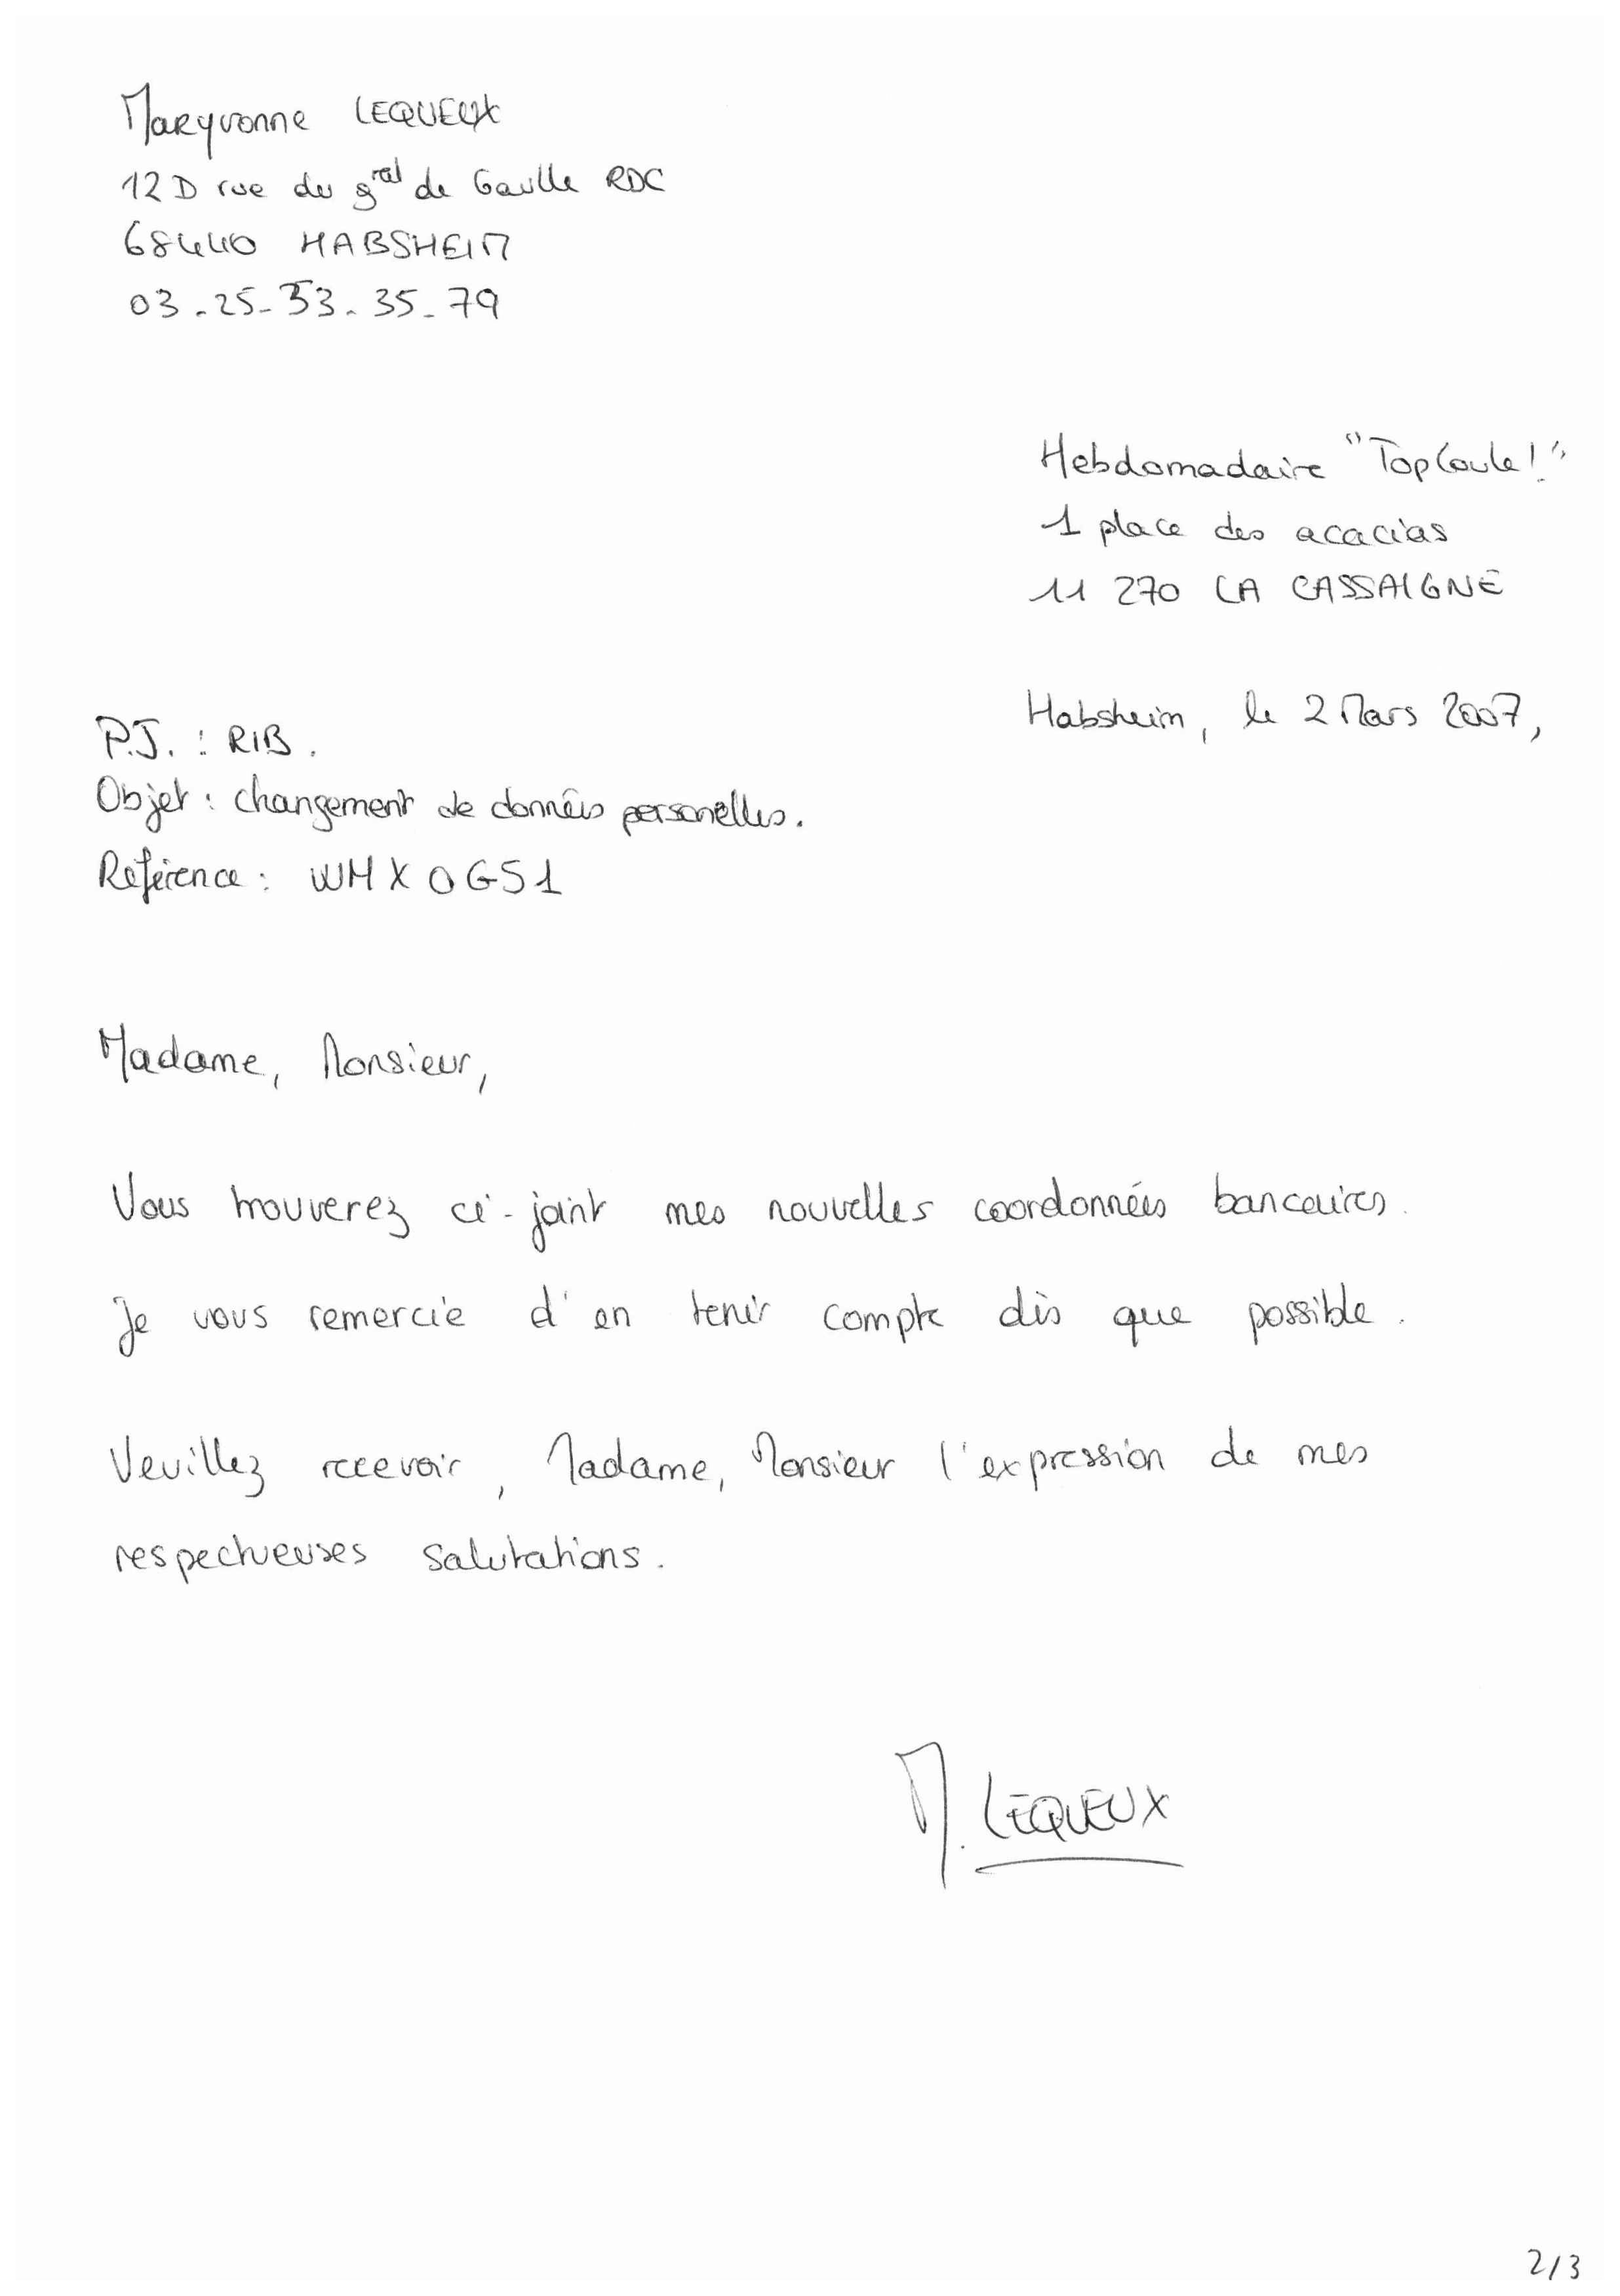 Maryvonne LEQUEUX
12 D rue du gral de Gaulle RDC
68440 HABSHEIM
03.25.33.35.79
Hebdomadaire "TopCoule!"
1 place des acacias
11 270 LA CASSAIGNE
Habsheim, le 2 Mars 2007,
P.J. : RIB.
Objet : changement de données personelles.
Référence : WHX0G51
Madame, Monsieur,
Vous trouverez ci-joint mes nouvelles coordonnées bancaires.
Je vous remercie d'en tenir compte dès que possible.
Veuillez recevoir, Madame, Monsieur l'expression de mes
respectueuses salutations.
M. LEQUEUX
2/3